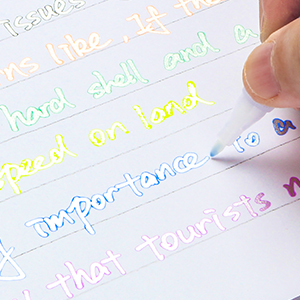 issues
ns like, If the
hard shell and a
speed on land
f importance to a
that tourists